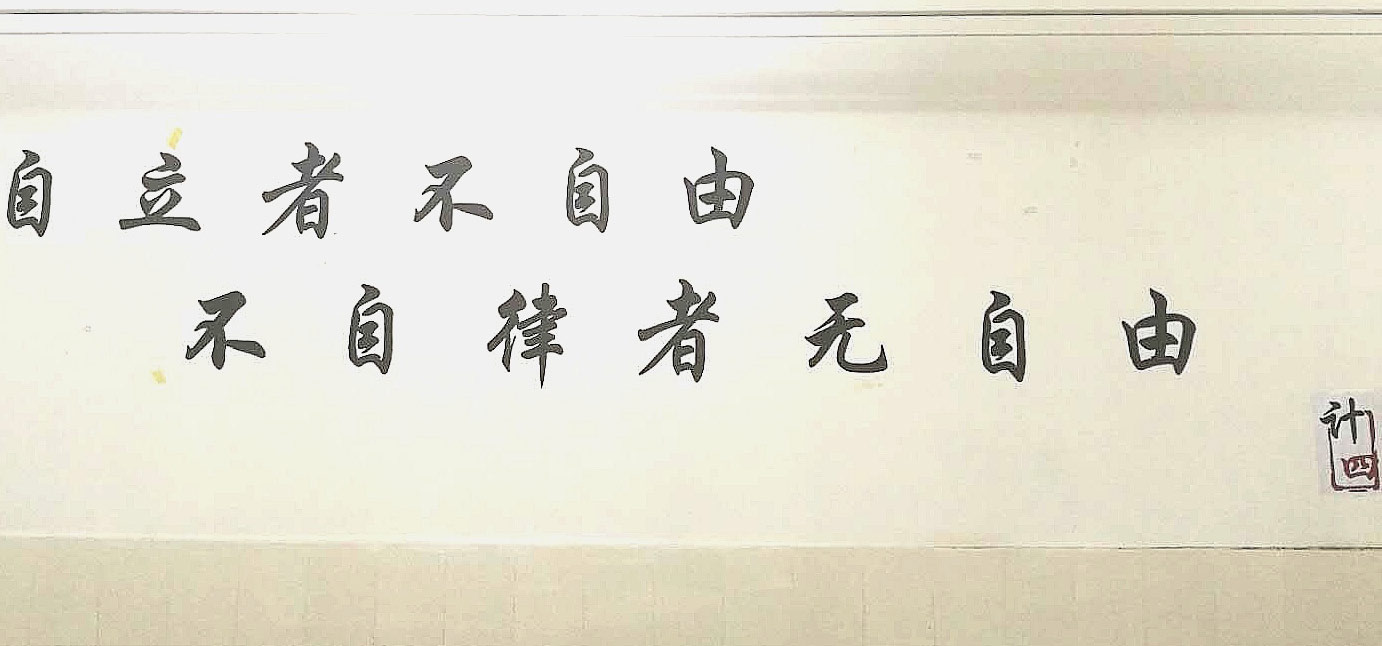 自立者不自由
不自律者无自由
计
四